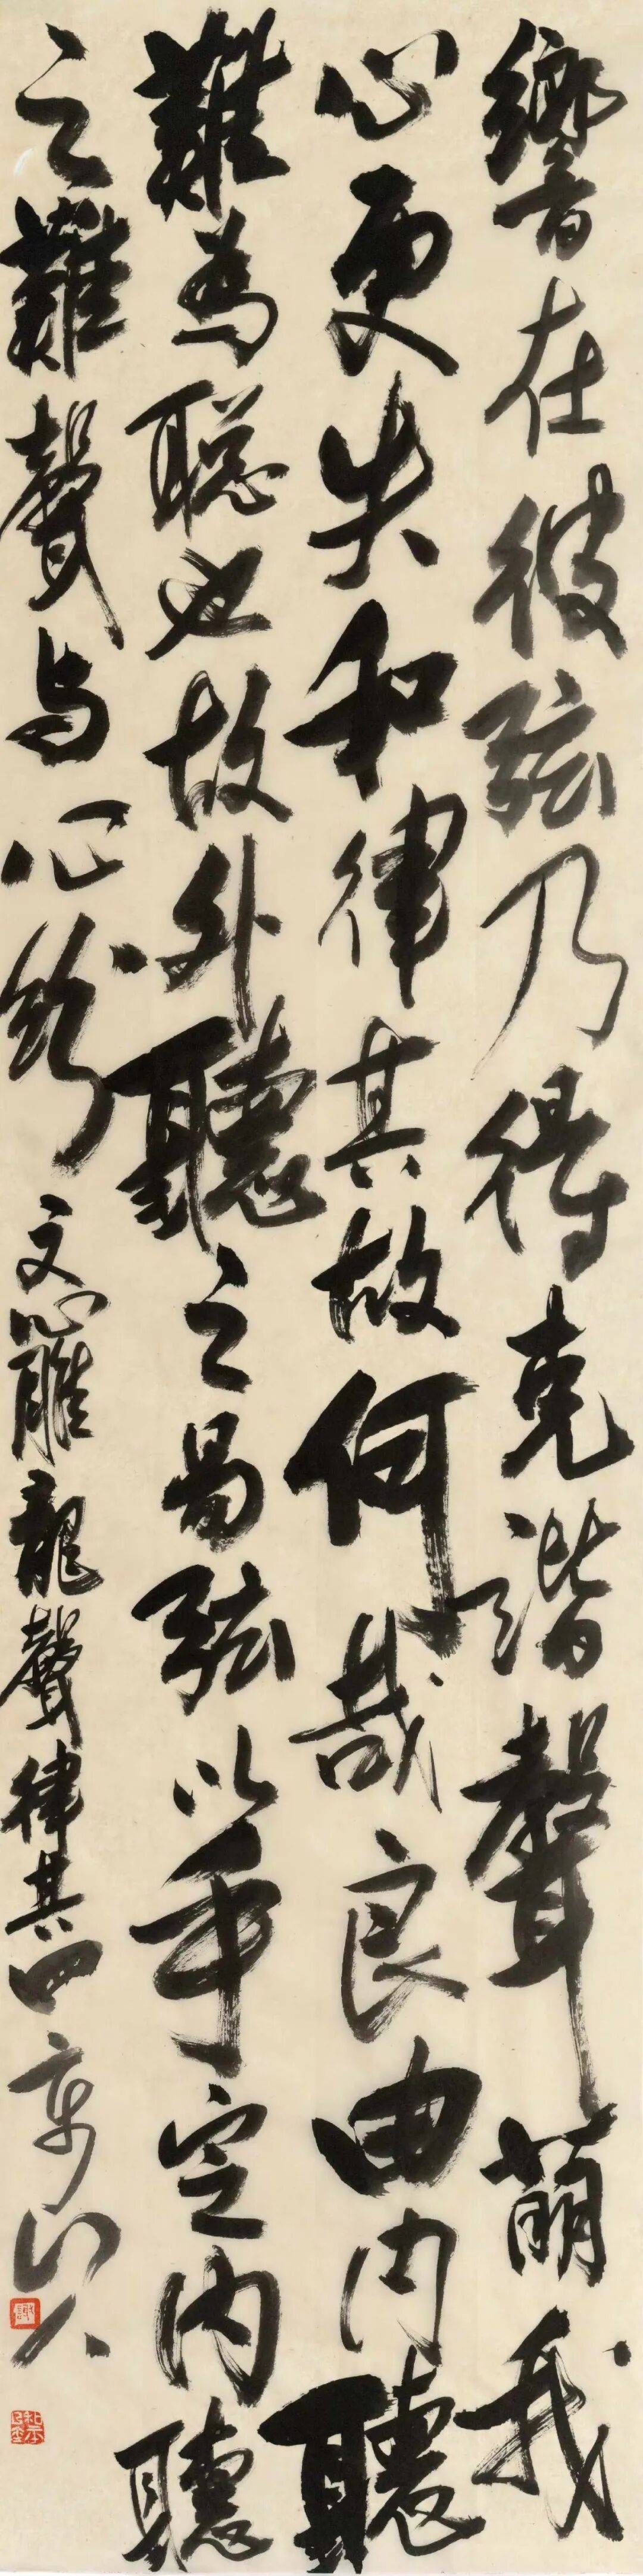 響在彼弦乃得克諧聲萌我
心更失和律其故何哉良由内聽
難為聰也故外聽之易弦以手定内聽
之難聲与心紛 文心雕龍聲律其四